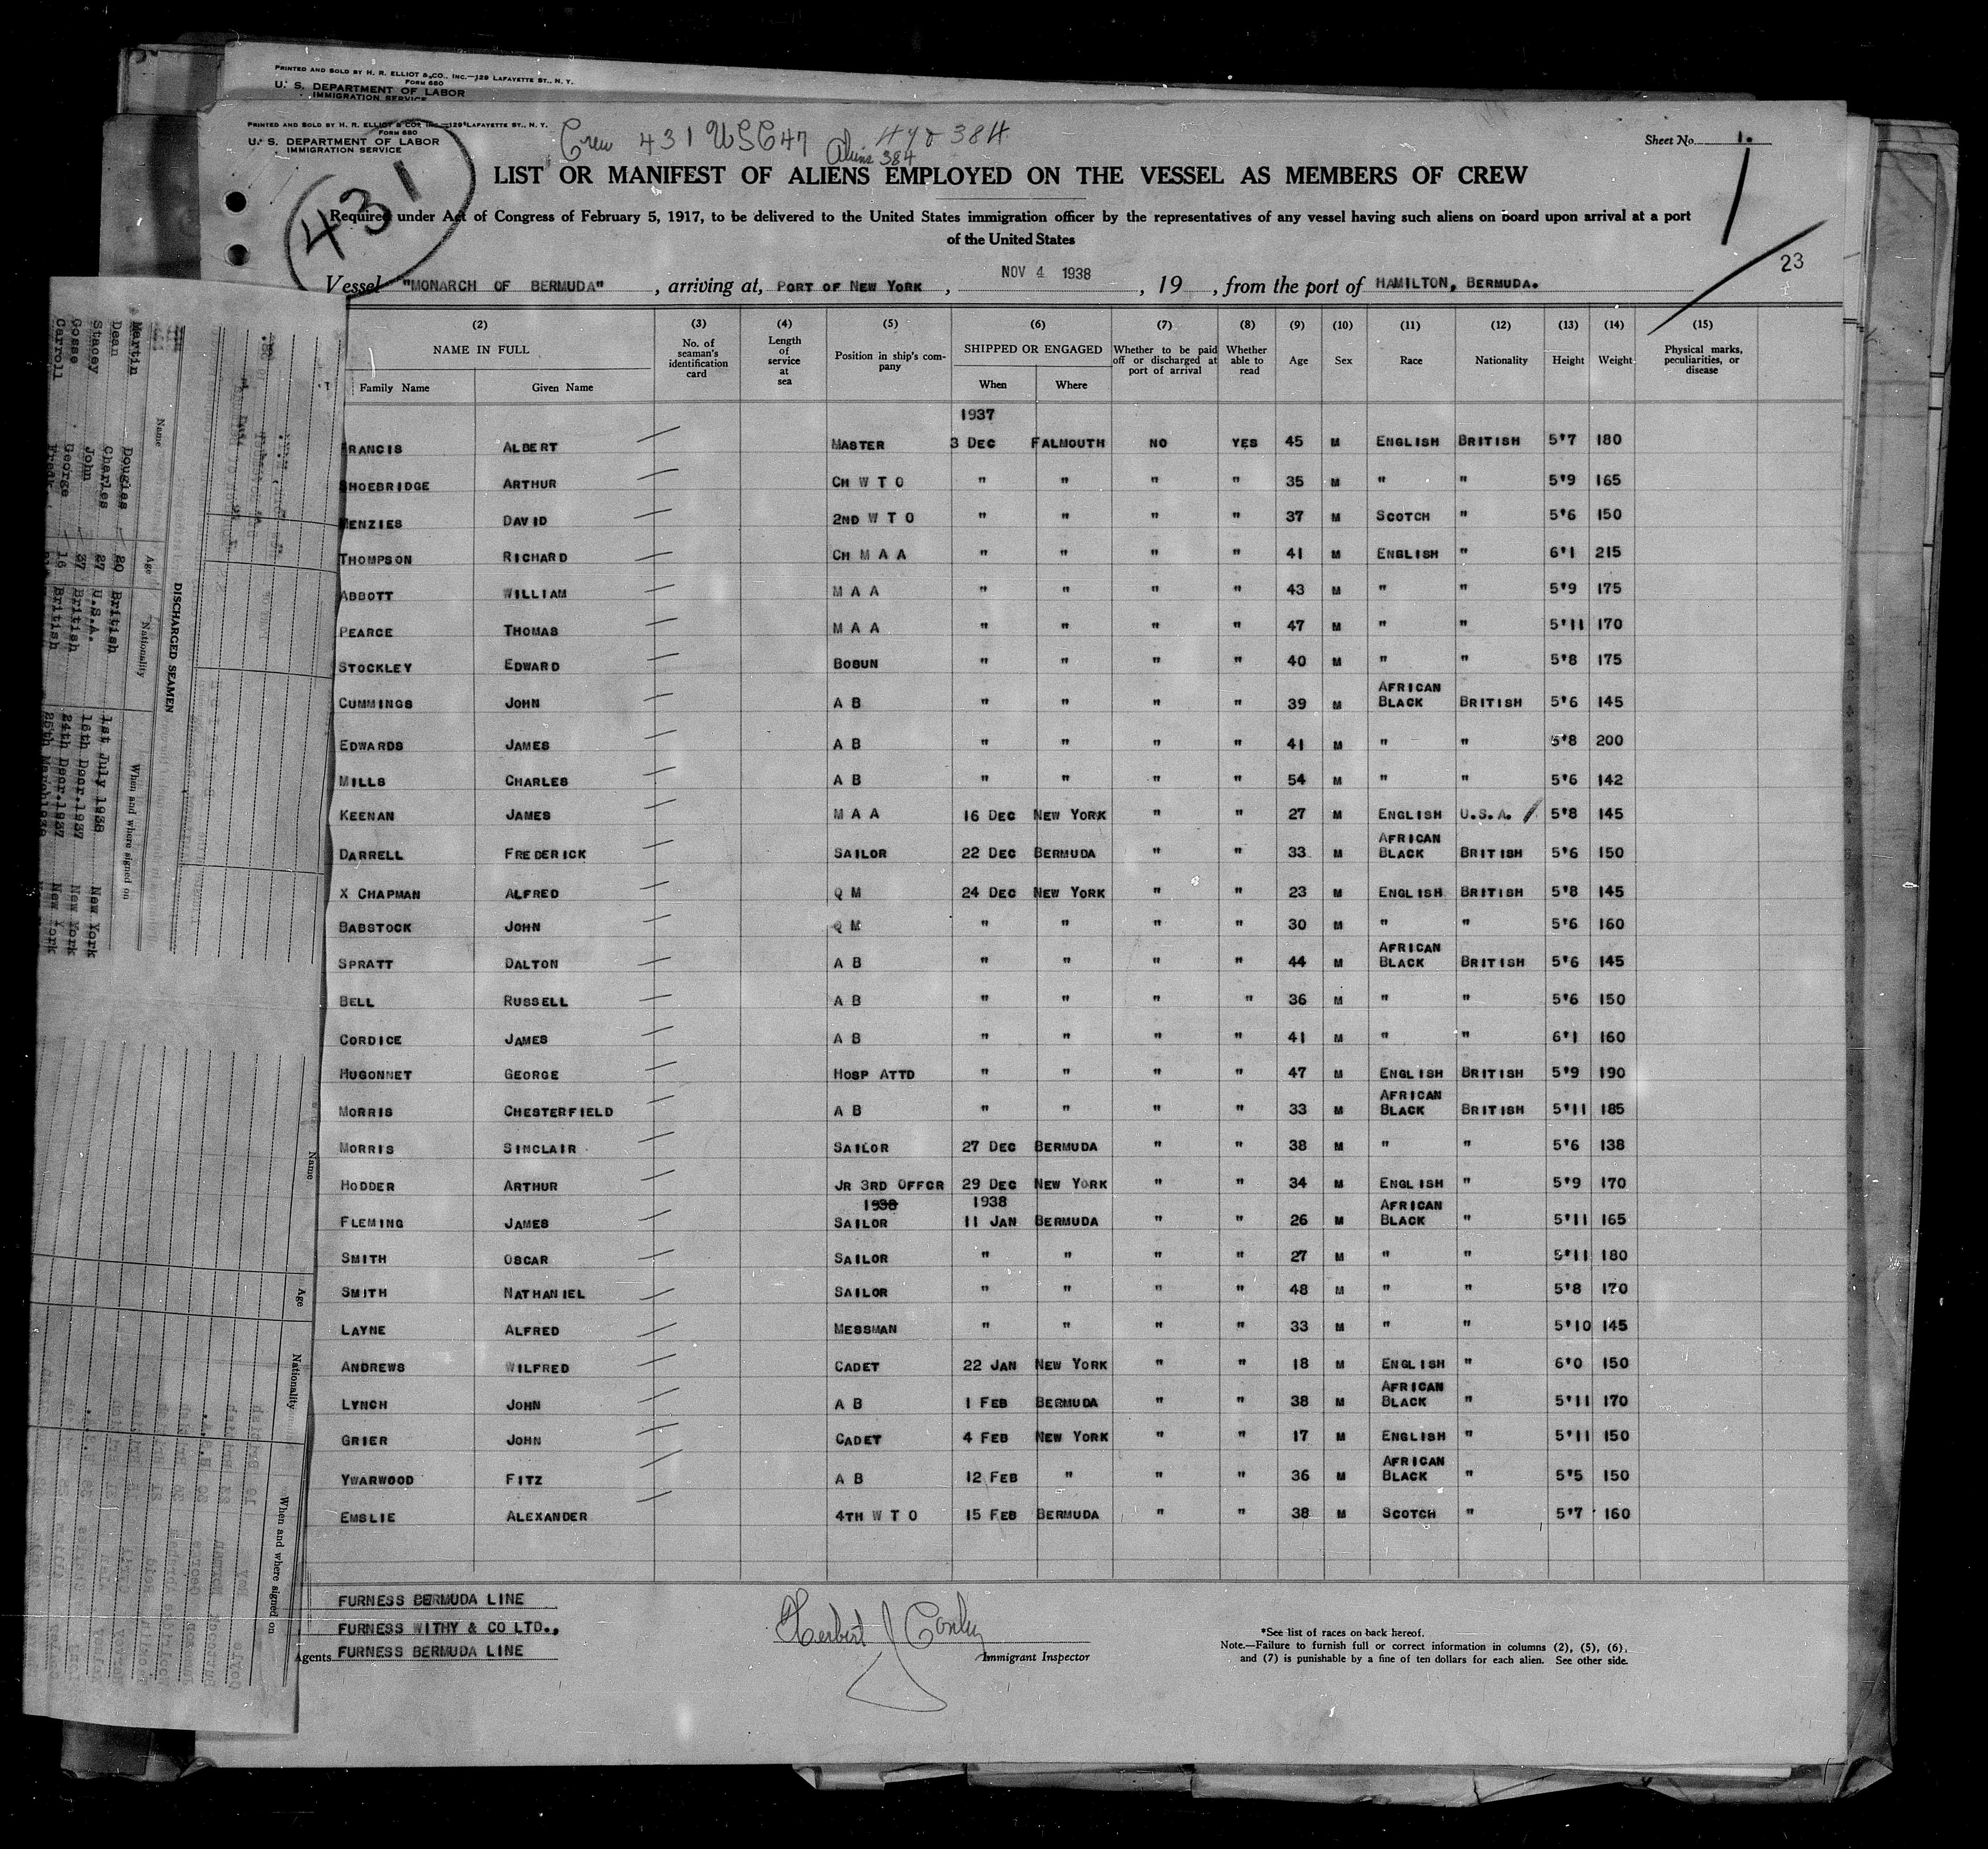 PRINTED AND SOLD BY H. R. ELLIOT & CO., INC.—129 LAFAYETTE ST., N. Y.
FORM 680
U. S. DEPARTMENT OF LABOR
IMMIGRATION SERVICE
PRINTED AND SOLD BY H. R. ELLIOT & CO., INC.—129 LAFAYETTE ST., N. Y.
FORM 680
U. S. DEPARTMENT OF LABOR
IMMIGRATION SERVICE
Crew 431 USC 47 384
Aliens 384
431
Sheet No. 1.
LIST OR MANIFEST OF ALIENS EMPLOYED ON THE VESSEL AS MEMBERS OF CREW
Required under Act of Congress of February 5, 1917, to be delivered to the United States immigration officer by the representatives of any vessel having such aliens on board upon arrival at a port
of the United States
23
Vessel "MONARCH OF BERMUDA", arriving at, PORT OF NEW YORK, NOV 4 1938, 19 , from the port of HAMILTON, BERMUDA.
(2) (3) (4) (5) (6) (7) (8) (9) (10) (11) (12) (13) (14) (15)
NAME IN FULL No. of seaman's identification card Length of service at sea Position in ship's company SHIPPED OR ENGAGED Whether to be paid off or discharged at port of arrival Whether able to read Age Sex Race Nationality Height Weight Physical marks, peculiarities, or disease
Family Name Given Name When Where
1937
FRANCIS ALBERT MASTER 3 DEC FALMOUTH NO YES 45 M ENGLISH BRITISH 5'7 180
SHOEBRIDGE ARTHUR CH W T O " " " " 35 M " " 5'9 165
MENZIES DAVID 2ND W T O " " " " 37 M SCOTCH " 5'6 150
THOMPSON RICHARD CH M A A " " " " 41 M ENGLISH " 6'1 215
ABBOTT WILLIAM M A A " " " " 43 M " " 5'9 175
PEARCE THOMAS M A A " " " " 47 M " " 5'11 170
STOCKLEY EDWARD BOSUN " " " " 40 M " " 5'8 175
CUMMINGS JOHN A B " " " " 39 M AFRICAN BLACK BRITISH 5'6 145
EDWARDS JAMES A B " " " " 41 M " " 5'8 200
MILLS CHARLES A B " " " " 54 M " " 5'6 142
KEENAN JAMES M A A 16 DEC NEW YORK " " 27 M ENGLISH U.S.A. 5'8 145
DARRELL FREDERICK SAILOR 22 DEC BERMUDA " " 33 M AFRICAN BLACK BRITISH 5'6 150
X CHAPMAN ALFRED Q M 24 DEC NEW YORK " " 23 M ENGLISH BRITISH 5'8 145
BABSTOCK JOHN Q M " " " " 30 M " " 5'6 160
SPRATT DALTON A B " " " " 44 M AFRICAN BLACK BRITISH 5'6 145
BELL RUSSELL A B " " " " 36 M " " 5'6 150
CORDICE JAMES A B " " " " 41 M " " 6'1 160
HUGONNET GEORGE HOSP ATTD " " " " 47 M ENGLISH BRITISH 5'9 190
MORRIS CHESTERFIELD A B " " " " 33 M AFRICAN BLACK BRITISH 5'11 185
MORRIS SINCLAIR SAILOR 27 DEC BERMUDA " " 38 M " " 5'6 138
HODDER ARTHUR JR 3RD OFFCR 29 DEC NEW YORK " " 34 M ENGLISH " 5'9 170
1938 1938
FLEMING JAMES SAILOR 11 JAN BERMUDA " " 26 M AFRICAN BLACK " 5'11 165
SMITH OSCAR SAILOR " " " " 27 M " " 5'11 180
SMITH NATHANIEL SAILOR " " " " 48 M " " 5'8 170
LAYNE ALFRED MESSMAN " " " " 33 M " " 5'10 145
ANDREWS WILFRED CADET 22 JAN NEW YORK " " 18 M ENGLISH " 6'0 150
LYNCH JOHN A B 1 FEB BERMUDA " " 38 M AFRICAN BLACK " 5'11 170
GRIER JOHN CADET 4 FEB NEW YORK " " 17 M ENGLISH " 5'11 150
YWARWOOD FITZ A B 12 FEB " " " 36 M AFRICAN BLACK " 5'5 150
EMSLIE ALEXANDER 4TH W T O 15 FEB BERMUDA " " 38 M SCOTCH " 5'7 160
FURNESS BERMUDA LINE
FURNESS WITHY & CO LTD.,
Agents FURNESS BERMUDA LINE
Herbert J Conley
Immigrant Inspector
*See list of races on back hereof.
Note.—Failure to furnish full or correct information in columns (2), (5), (6),
and (7) is punishable by a fine of ten dollars for each alien. See other side.
DISCHARGED SEAMEN
Name Age Nationality When and where signed on
Martin Douglas 20 British 1st July 1938 New York
Dean Charles 27 U.S.A. 16th Decr. 1937 New York
Stacey John 37 British 24th Decr. 1937 New York
Gosse George 16 British 25th March 1938 New York
Carroll Fredk.
Name Age Nationality When and where signed on